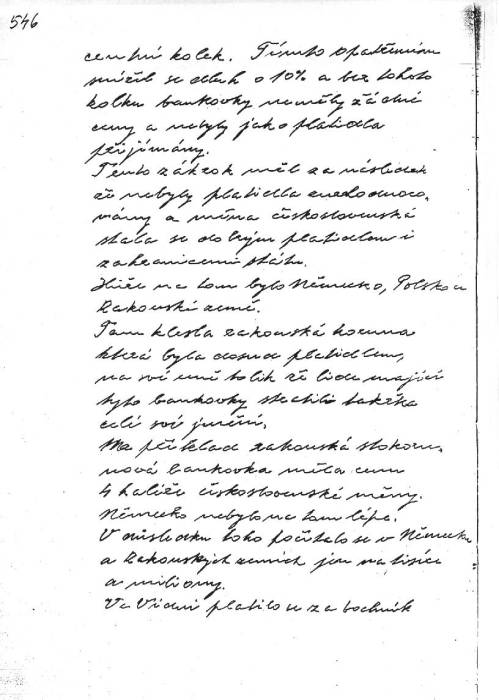 546
centní kolek. Tímto opatřením
snížil se dluh o 10% a bez tohoto
kolku bankovky neměly žádné
ceny a nebyly jako platidla
přijímány.
Tento zákrok měl za následek
že nebyly platidla znehodnoco-
vány a měna československá
stala se dobrým platidlem i
zahraničním státu.
Hůře na tom bylo Německo, Polsko a
Rakouské země.
Tam klesla rakouská koruna
která byla dosud platidlem,
na své ceně tolik že lidé mající
tyto bankovky ztratili takřka
celé své jmění.
Na příklad rakouská stokoru-
nová bankovka měla cenu
4 haléře československé měny.
Německo nebylo na tom lépe.
V důsledku toho počítalo se v Německu
a Rakouských zemích jen na tisíce
a miliony.
Ve Vídni platilo se za bochník